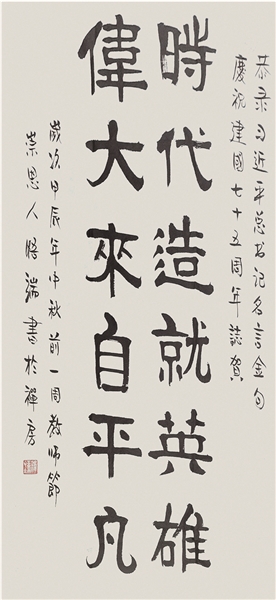 恭录习近平总书记名言金句
慶祝建國七十五周年誌賀
時代造就英雄
偉大來自平凡
歲次甲辰年中秋前一周教师節
崇恩人悟端書於禪房